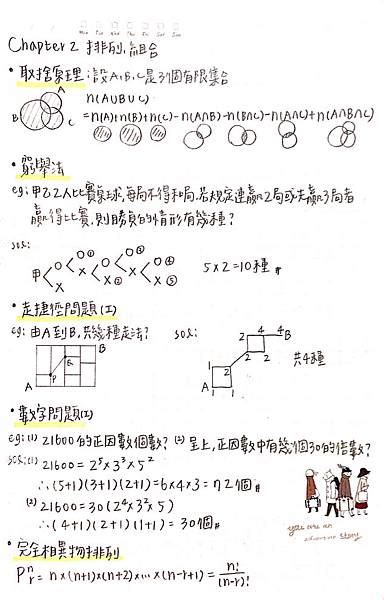 Mon Tue Wed Thu Fri Sat Sun
Chapter 2 排列、組合
• 取捨原理:設A、B、C是3個有限集合
A
B
C
n(A∪B∪C)
=n(A)+n(B)+n(C)-n(A∩B)-n(B∩C)-n(A∩C)+n(A∩B∩C)
• 窮舉法
eg:甲乙2人比賽桌球,每局不得和局,若規定連贏2局或先贏3局者
贏得比賽,則勝負的情形有幾種?
sol:
甲 O O① O O③ O④
X X X② X X⑤
5×2=10種 #
• 走捷徑問題(I)
eg:由A到B,共幾種走法? sol:
B
Q
P
A
2 4 4 B
2 2 2
1 2
A 1 1
共4種
• 數字問題(I)
eg:(1) 21600的正因數個數? (2) 呈上,正因數中有幾個30的倍數?
sol:(1) 21600=2⁵×3³×5²
∴(5+1)(3+1)(2+1)=6×4×3=72個 #
(2) 21600=30(2⁴×3²×5)
∴(4+1)(2+1)(1+1)=30個 #
you are an
adventure story
• 完全相異物排列
Pⁿᵣ=n×(n+1)×(n+2)×…×(n-r+1)=n!/(n-r)!